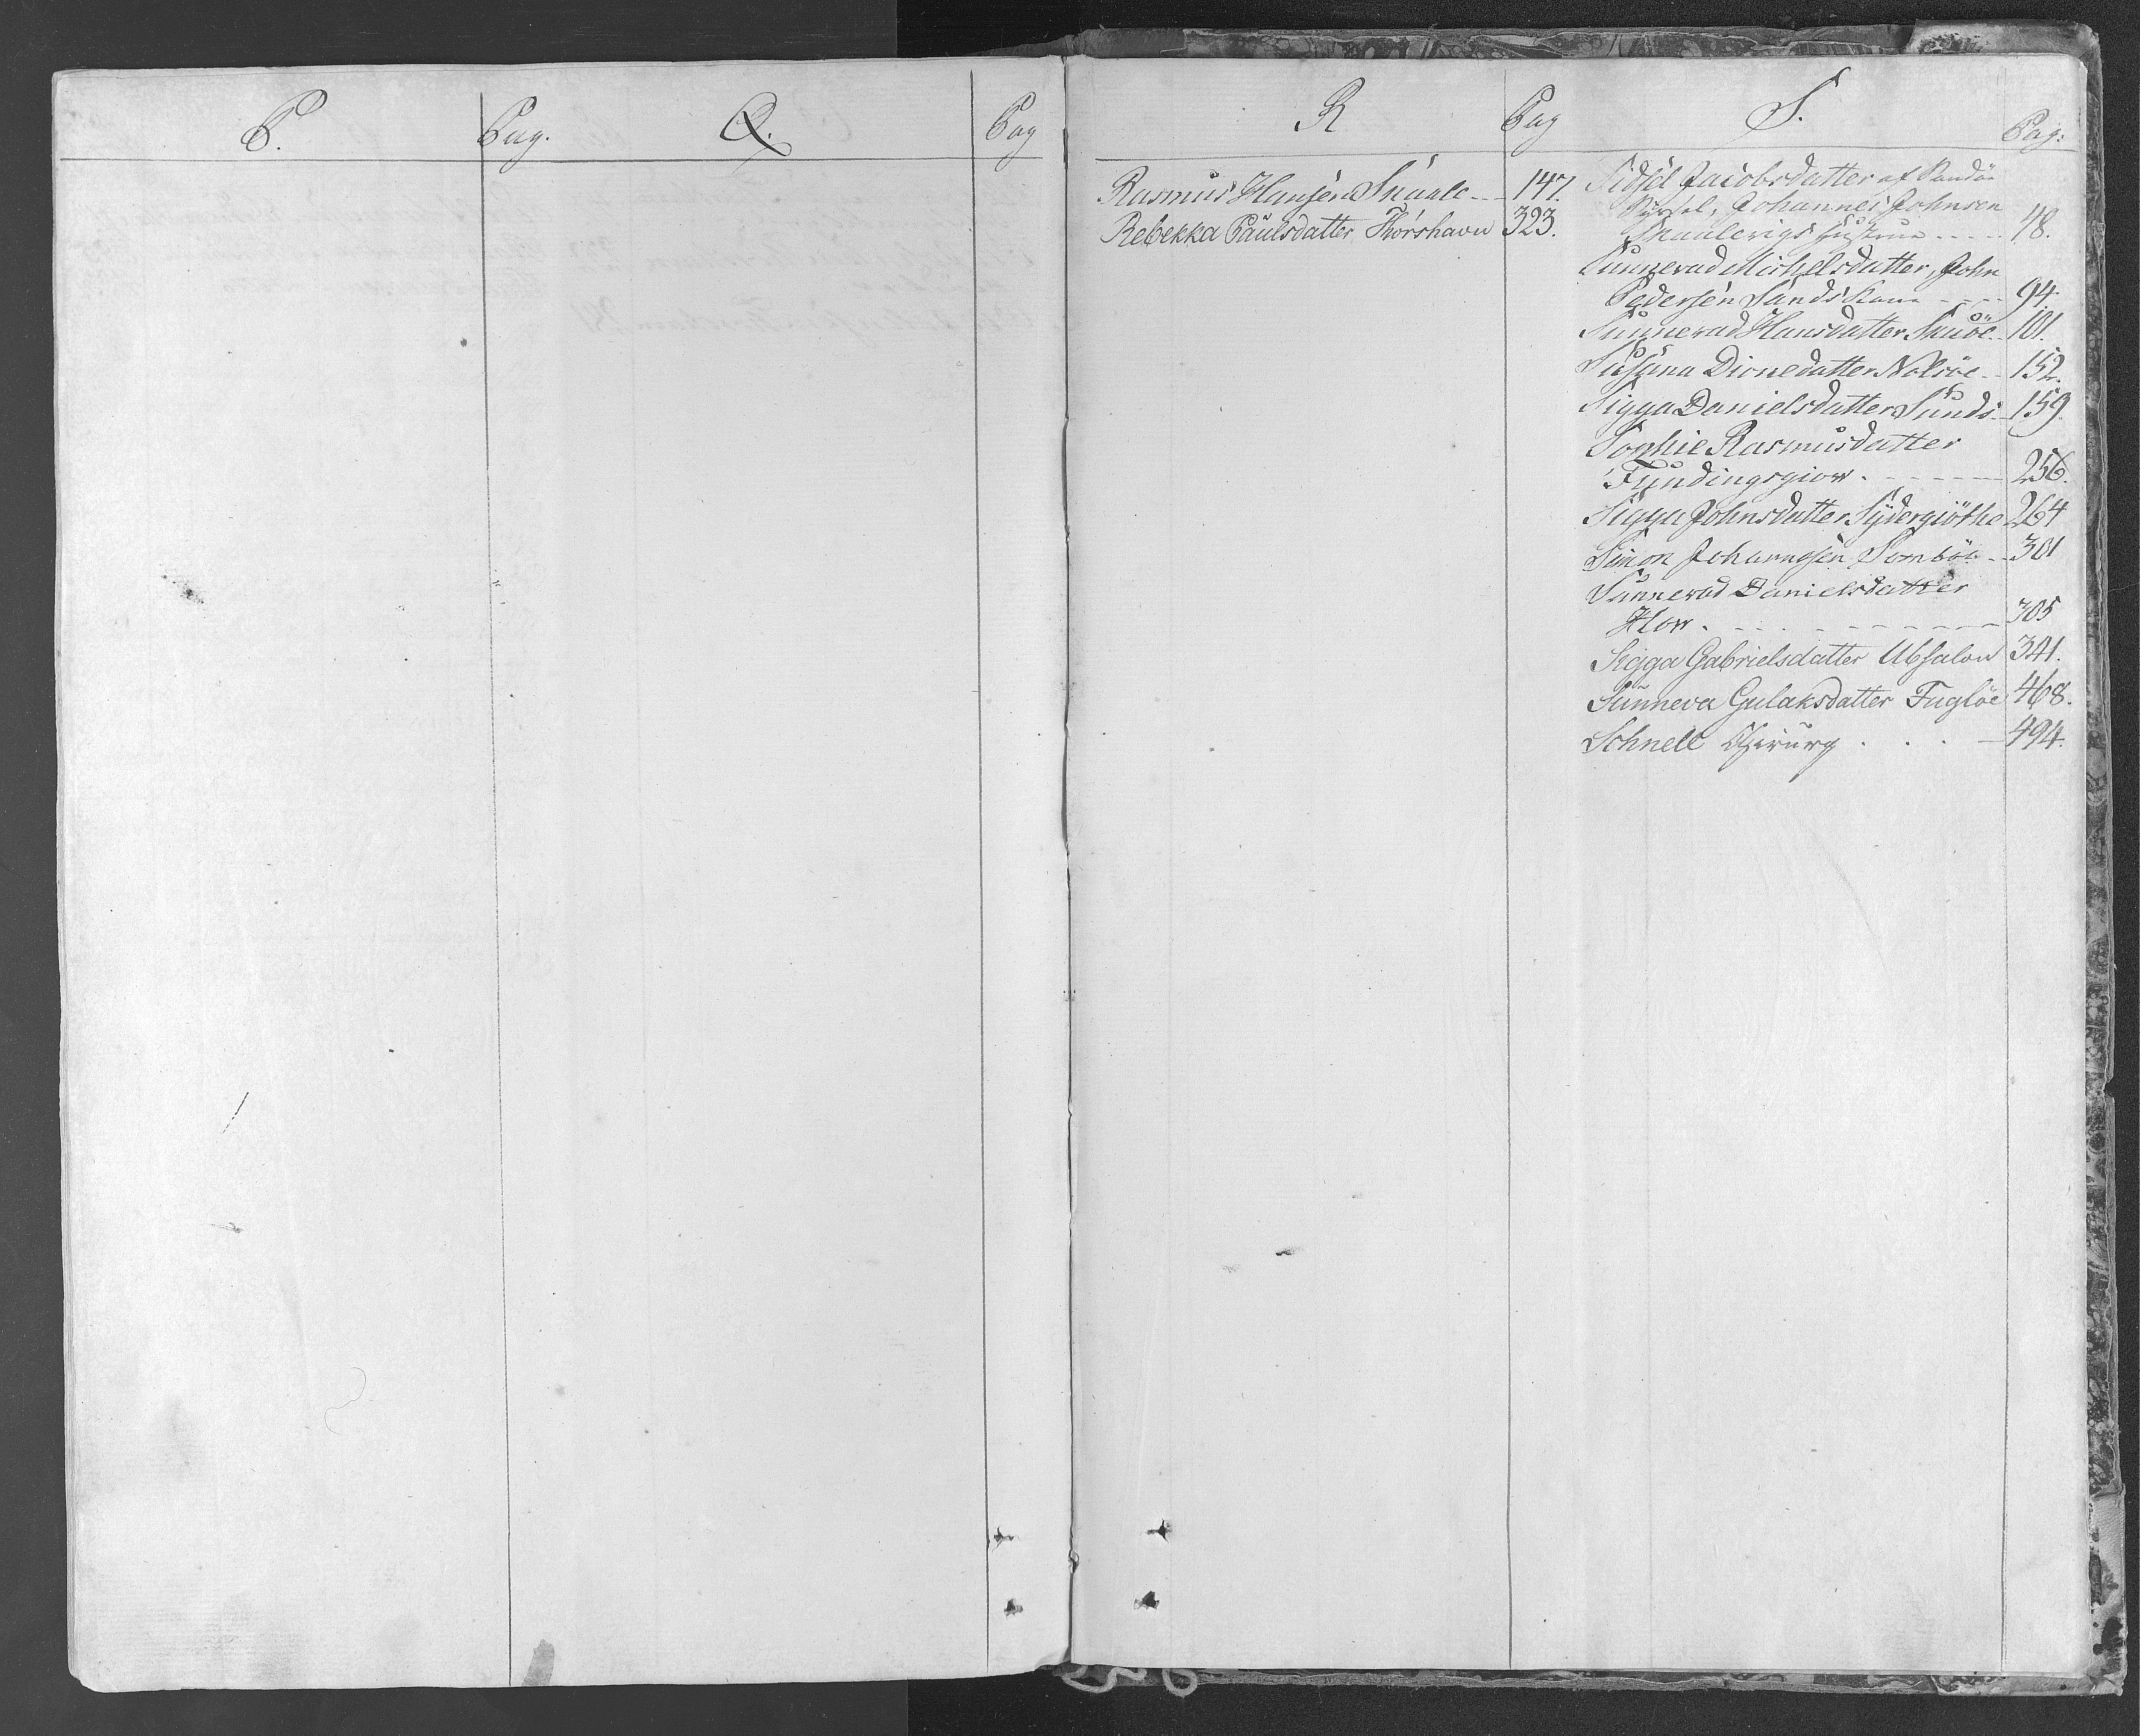 P.
Pag.
Q.
Pag
R
Pag
Rasmus Hansen Skaale - - - 147.
Rebekka Paulsdatter Thorshavn 323.
S.
Pag:
Sidsel Jacobsdatter af Sandöe
Johannes Johnsen
Skaalevigs Hustrue - - - - 48.
Sunnevad Michelsdatter, John
Pedersen Sands Kone - - - 94.
Sunnevad Hansdatter Skuöe - 101.
Susana Dionedatter Nolsöe - - 152.
Sigga Danielsdatter Sunds - 159.
Sophie Rasmusdatter
Fundingsgiow - - - - - - 256.
Sigga Johnsdatter Sydergiöthe 264
Simon Johannesen Somböe - - 301
Sunnevad Danielsdatter
How - - - - - - - - - 305
Sigga Gabrielsdatter Ubsalon 341.
Sunneva Gulaksdatter Fuglöe 468.
Schnell Chirurg . . . - 494.